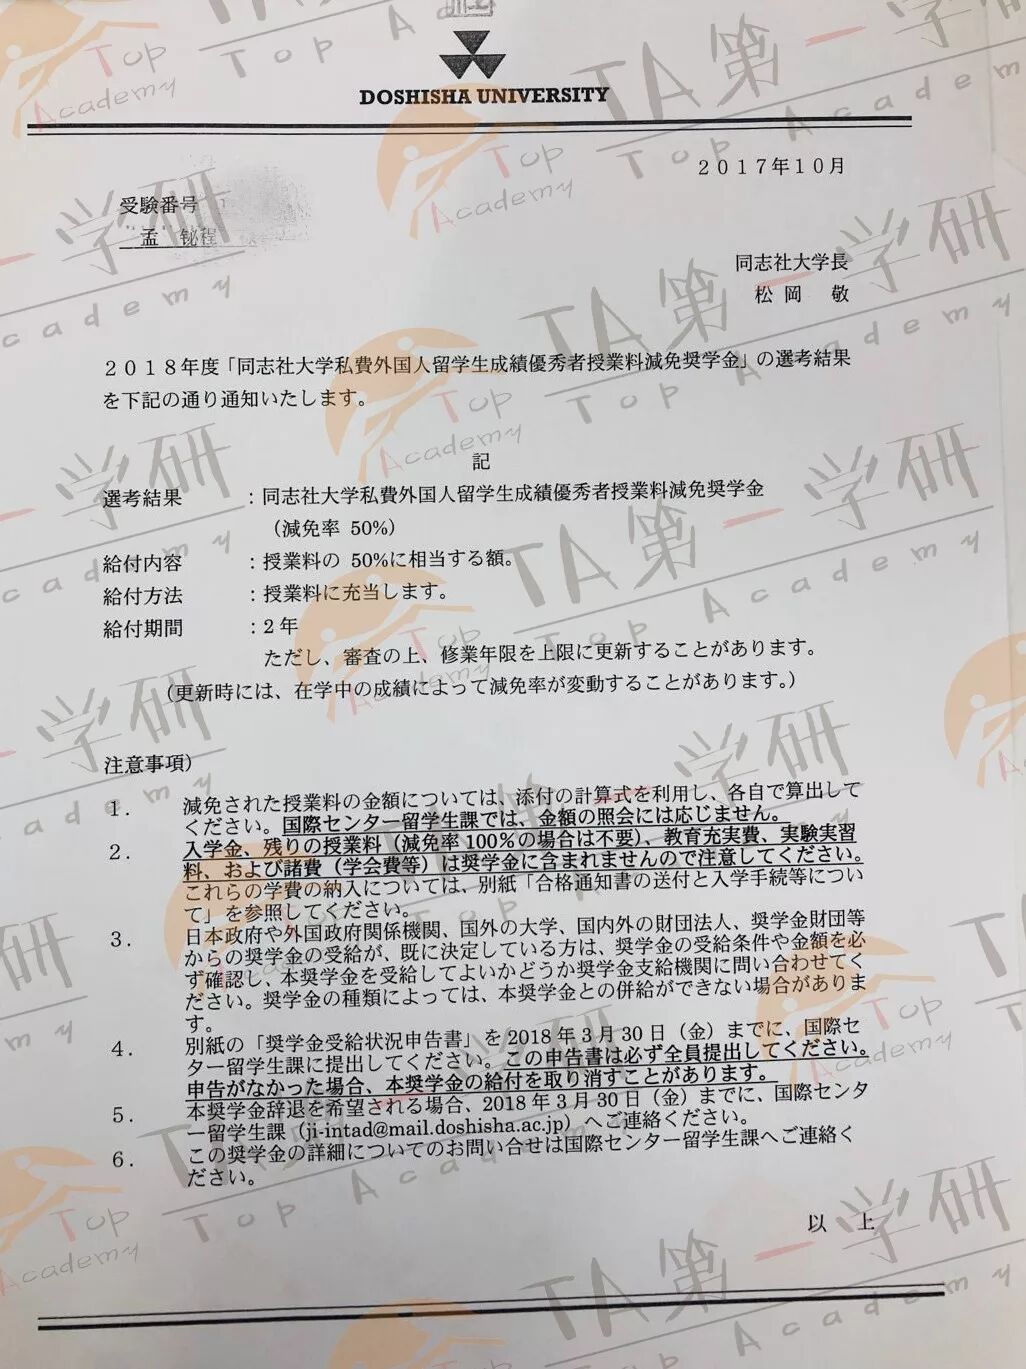 DOSHISHA UNIVERSITY
2017年10月
受験番号
孟 铋程
同志社大学長
松岡 敬
2018年度「同志社大学私費外国人留学生成績優秀者授業料減免奨学金」の選考結果
を下記の通り通知いたします。
記
選考結果 : 同志社大学私費外国人留学生成績優秀者授業料減免奨学金
（減免率 50%）
給付内容 : 授業料の 50%に相当する額。
給付方法 : 授業料に充当します。
給付期間 : 2 年
ただし、審査の上、修業年限を上限に更新することがあります。
（更新時には、在学中の成績によって減免率が変動することがあります。）
注意事項）
1. 減免された授業料の金額については、添付の計算式を利用し、各自で算出して
ください。国際センター留学生課では、金額の照会には応じません。
2. 入学金、残りの授業料（減免率100%の場合は不要）、教育充実費、実験実習
料、および諸費（学会費等）は奨学金に含まれませんので注意してください。
これらの学費の納入については、別紙「合格通知書の送付と入学手続等につい
て」を参照してください。
3. 日本政府や外国政府関係機関、国外の大学、国内外の財団法人、奨学金財団等
からの奨学金の受給が、既に決定している方は、奨学金の受給条件や金額を必
ず確認し、本奨学金を受給してよいかどうか奨学金支給機関に問い合わせてく
ださい。奨学金の種類によっては、本奨学金との併給ができない場合がありま
す。
4. 別紙の「奨学金受給状況申告書」を2018年3月30日（金）までに、国際セ
ンター留学生課に提出してください。この申告書は必ず全員提出してください。
申告がなかった場合、本奨学金の給付を取り消すことがあります。
5. 本奨学金辞退を希望される場合、2018年3月30日（金）までに、国際センタ
ー留学生課（ji-intad@mail.doshisha.ac.jp）へご連絡ください。
6. この奨学金の詳細についてのお問い合せは国際センター留学生課へご連絡く
ださい。
以 上
TA第一学研
Top Academy